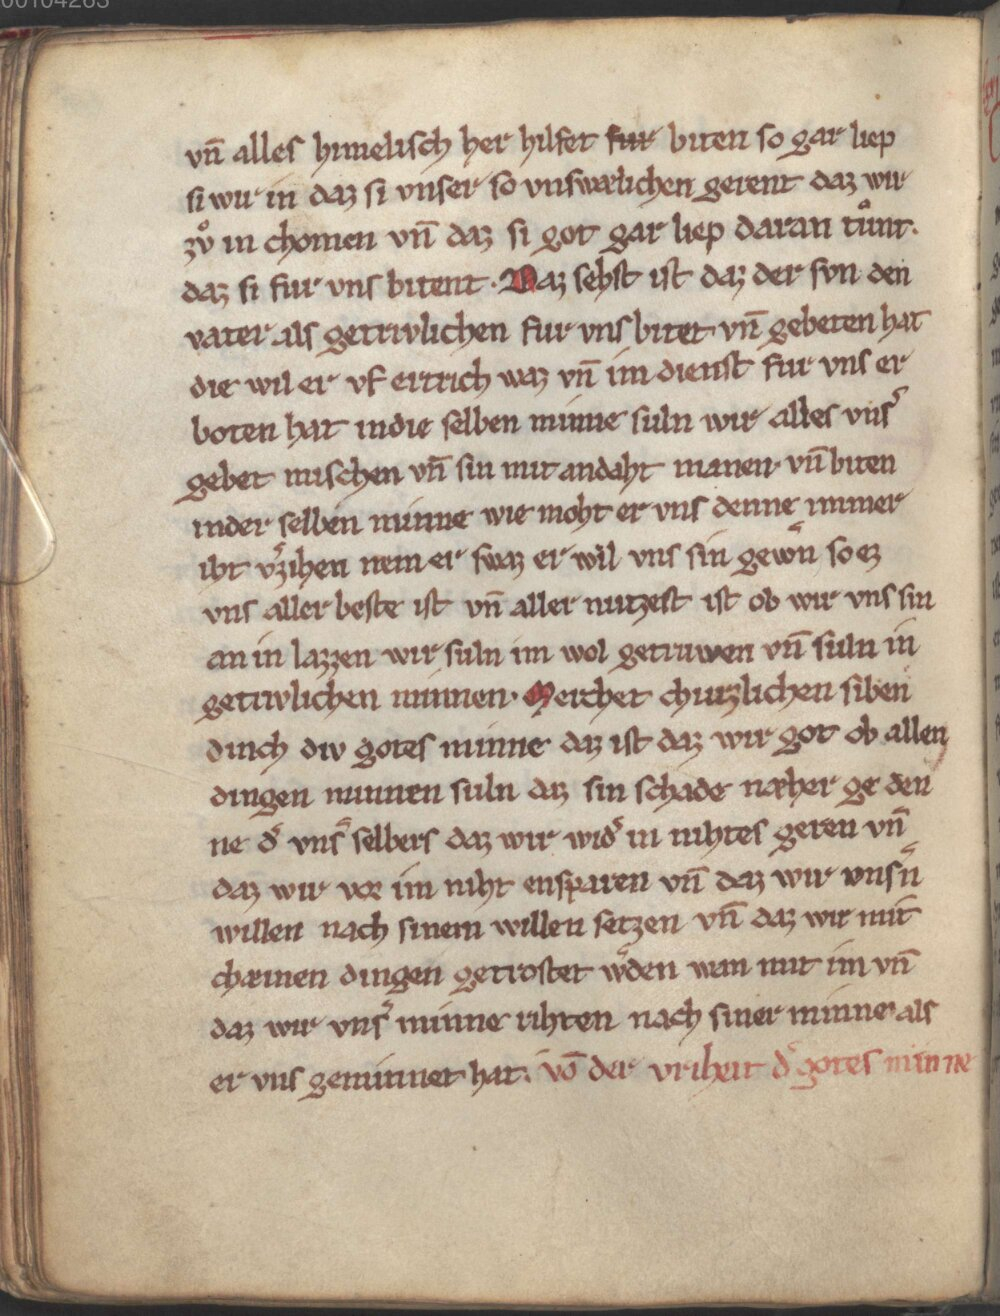 00104263
vn̄ alles himelisch her hilfet fur biten so gar liep
si wir in daz si vnser so vnswærlichen gerent daz wir
zvͦ in chomen vn̄ daz si got gar liep daran tuͦnt.
daz si fur vns bitent. Daz sehst ist daz der svn den
vater als getrivlichen fur vns bitet vn̄ gebeten hat
die wil er vf ertrich waz vn̄ im dienst fur vns er
boten hat in die selben minne suln wir alles vnsˀ
gebet mischen vn̄ sin mit andaht manen vn̄ biten
in der selben minne wie moht er vns denne immer
iht vˀzihen nem er swaz er wil vns sin gewōn so ez
vns aller beste ist vn̄ aller nutzest ist ob wir vns sin
an in lazzen wir suln im wol getruwen vn̄ suln in
getrivlichen minnen. Merchet churzlichen siben
dinch div gotes minne daz ist daz wir got ob allen
dingen minnen suln daz sin schade næher ge den
ne dˀ vnsˀ selbers daz wir widˀ in nihtes geren vn̄
daz wir vor im niht ensparen vn̄ daz wir vnsn̄
willen nach sinem willen setzen vn̄ daz wir mit
chæinen dingen getrostet wˀden wan mit im vn̄
daz wir vnsˀ minne rihten nach siner minne als
er vns geminnet hat. vō der vriheit dˀ gotes minne